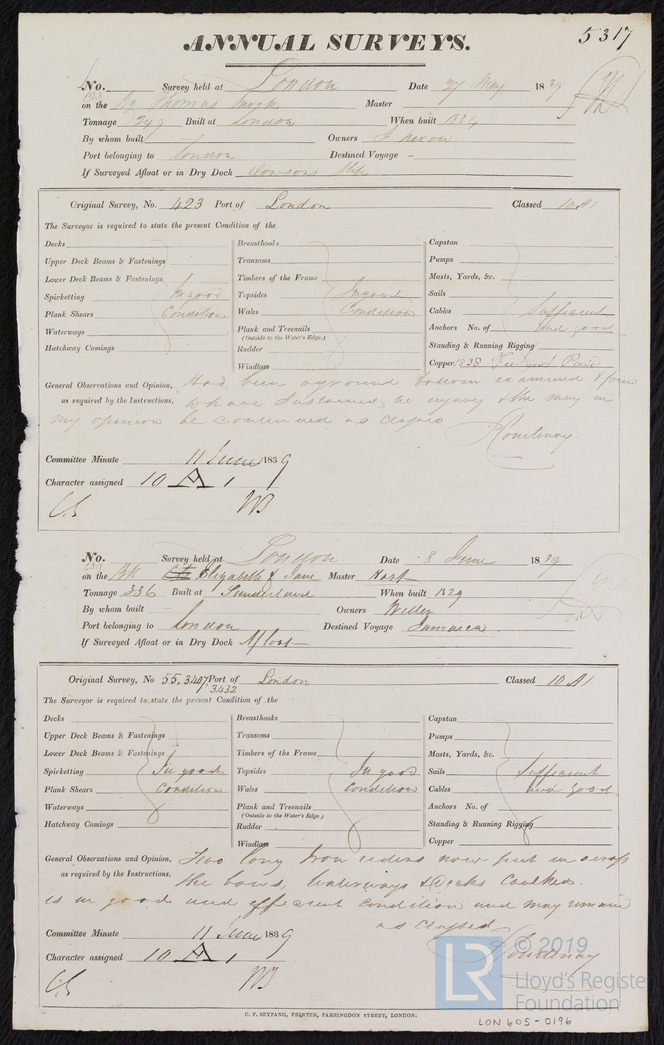 ANNUAL SURVEYS.
5317
No. Survey held at London Date 27 May 1839
on the Bg Thomas Master
Tonnage 249 Built at London When built 1834
By whom built Owners
Port belonging to London Destined Voyage -
If Surveyed Afloat or in Dry Dock
Original Survey, No. 423 Port of London Classed 10 A1
The Surveyor is required to state the present Condition of the
Decks
Upper Deck Beams & Fastenings
Lower Deck Beams & Fastenings
Spirketting In good
Plank Shears Condition
Waterways
Hatchway Comings
Breasthooks
Transoms
Timbers of the Frame
Topsides In good
Wales Condition
Plank and Treenails
(Outside to the Water's Edge.)
Rudder
Windlass
Capstan
Pumps
Masts, Yards, &c.
Sails
Cables Sufficient
Anchors No. of and good
Standing & Running Rigging
Copper 1838
General Observations and Opinion, Had been aground bottom examined & found
as required by the Instructions, to have sustained no injury & she may in
my opinion be continued as classed
Courtenay
Committee Minute 11 June 1839
Character assigned 10 A 1
No. Survey held at London Date 8 June 1839
on the Bk Elizabeth & Jane Master Hast
Tonnage 336 Built at Sunderland When built 1829
By whom built Owners
Port belonging to London Destined Voyage Jamaica
If Surveyed Afloat or in Dry Dock Afloat
Original Survey, No. 55, 3407 Port of London Classed 10 A1
3432
The Surveyor is required to state the present Condition of the
Decks
Upper Deck Beams & Fastenings
Lower Deck Beams & Fastenings
Spirketting In good
Plank Shears Condition
Waterways
Hatchway Comings
Breasthooks
Transoms
Timbers of the Frame
Topsides In good
Wales Condition
Plank and Treenails
(Outside to the Water's Edge.)
Rudder
Windlass
Capstan
Pumps
Masts, Yards, &c.
Sails Sufficient
Cables and good
Anchors No. of
Standing & Running Rigging
Copper
General Observations and Opinion, Two long Iron riders now put in across
as required by the Instructions, the bows, waterways & Decks Caulked.
is in good and efficient condition and may remain
as classed
Courtenay
Committee Minute 11 June 1839
Character assigned 10 A 1
LR © 2019
Lloyd's Register
Foundation
C. F. SEYFANG, PRINTER, FARRINGDON STREET, LONDON.
LON 605-0196